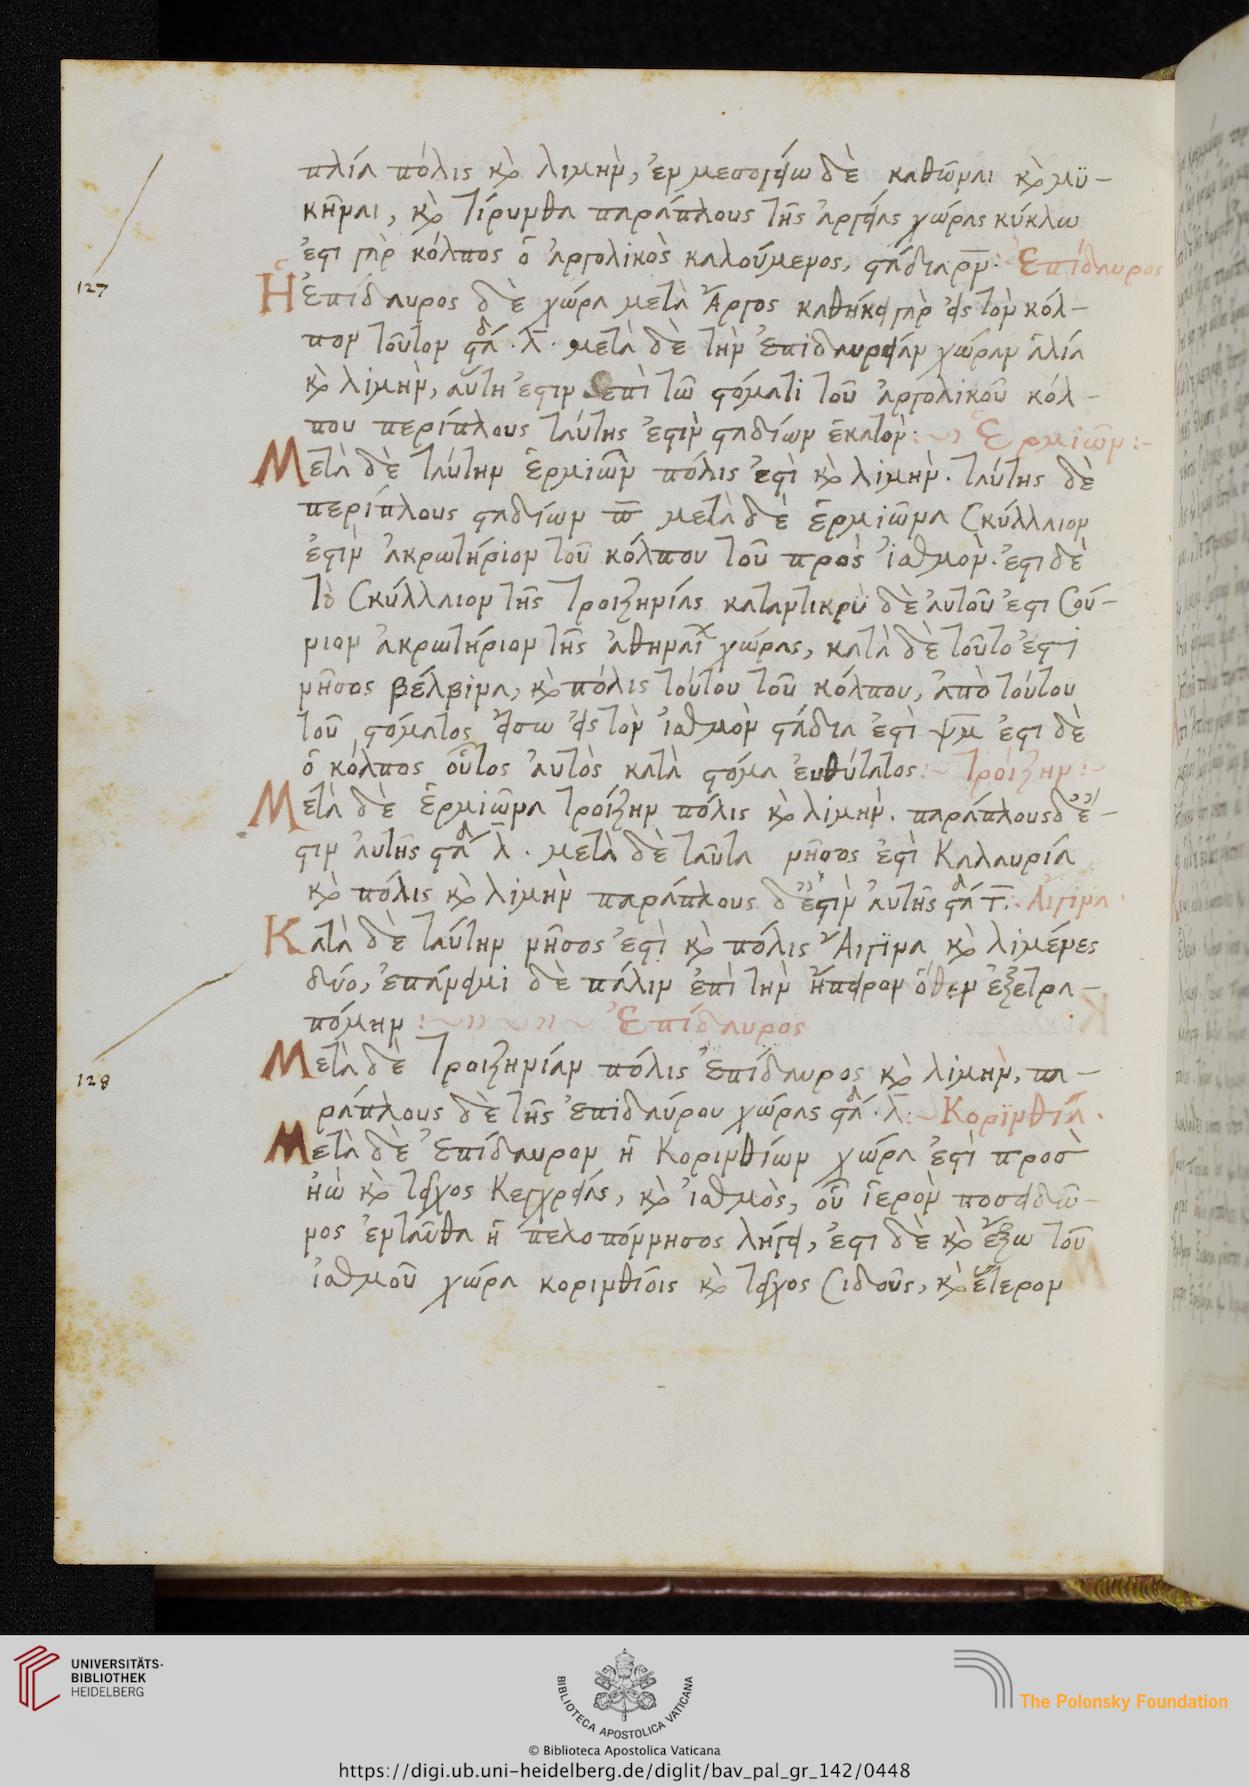 πλία πόλις κὶ λιμὴν, ἐν μεσογείω δὲ καθῶναι κὶ μϋ-
κῆναι, κὶ τίρυνθα παράπλους τῆς ἀργείας χώρας κύκλω
ἐστι γὰρ κόλπος ὁ ἀργολικὸς καλούμενος, στάδια ρν̅· Ἐπίδαυρος
127
Ἡ Ἐπίδαυρος δὲ χώρα μετὰ Ἄργος καθήκει γὰρ εἰς τὸν κόλ-
πον τοῦτον στάδ · λ̅ · μετὰ δὲ τὴν ἐπιδαυρείαν χώραν ἁλία
κὶ λιμὴν, αὕτη ἐστιν ἐπὶ τῶ στόματι τοῦ ἀργολικοῦ κόλ-
που περίπλους ταύτης ἐστὶν σταδίων ἑκατόν: Ἑρμιών:-
Μετὰ δὲ ταύτην ἑρμιὼν πόλις ἐστὶ κὶ λιμὴν. ταύτης δὲ
περίπλους σταδίων π̅ μετὰ δὲ ἑρμιῶνα Σκύλλαιον
ἐστὶν ἀκρωτήριον τοῦ κόλπου τοῦ πρὸς ἰσθμὸν. ἐστι δὲ
τὸ Σκύλλαιον τῆς τροιζηνίας καταντικρὺ δὲ αὐτοῦ ἐστι Σού-
νιον ἀκρωτήριον τῆς ἀθηναίχ χώρας, κατὰ δὲ τοῦτο ἐστι
νῆσος βέλβινα, κὶ πόλις τούτου τοῦ κόλπου, ἀπὸ τούτου
τοῦ στόματος εἴσω εἰς τὸν ἰσθμὸν στάδια ἐστὶ ψμ̅ ἐστι δὲ
ὁ κόλπος οὗτος αὐτὸς κατὰ στόμα εὐθύτατος:- Τροίζην:-
Μετὰ δὲ ἑρμιῶνα τροίζην πόλις κὶ λιμὴν. παράπλους δὲ ἐ-
στιν αὐτῆς στάδ λ̅. μετὰ δὲ ταῦτα νῆσος ἐστὶ Καλαυρία
κὶ πόλις κὶ λιμὴν παράπλους δὲ ἐστὶν αὐτῆς στάδ τ̅· Αἴγινα·
Κατὰ δὲ ταύτην νῆσος ἐστὶ κὶ πόλις Αἴγινα κὶ λιμένες
δύο, ἐπάνειμι δὲ πάλιν ἐπὶ τὴν ἤπειρον ὅθεν ἐξετρα-
πόμην: Ἐπίδαυρος
128
Μετὰ δὲ Τροιζηνίαν πόλις ἐπίδαυρος κὶ λιμὴν, πα-
ράπλους δὲ τῆς ἐπιδαύρου χώρας στάδ · λ̅:- Κορινθία.
Μετὰ δὲ Ἐπίδαυρον ἡ Κορινθίων χώρα ἐστὶ προσ
ἠὼ κὶ τεῖχος Κεγχρείας, κὶ ἰσθμὸς, οὗ ἱερὸν ποσειδῶ-
νος ἐνταῦθα ἡ πελοπόννησος λήγει, ἐστι δὲ κὶ ἔξω τοῦ
ἰσθμοῦ χώρα κορινθίοις κὶ τεῖχος Σιδοῦς, κὶ ἕτερον
UNIVERSITÄTS-
BIBLIOTHEK
HEIDELBERG
BIBLIOTECA APOSTOLICA VATICANA
The Polonsky Foundation
© Biblioteca Apostolica Vaticana
https://digi.ub.uni-heidelberg.de/diglit/bav_pal_gr_142/0448